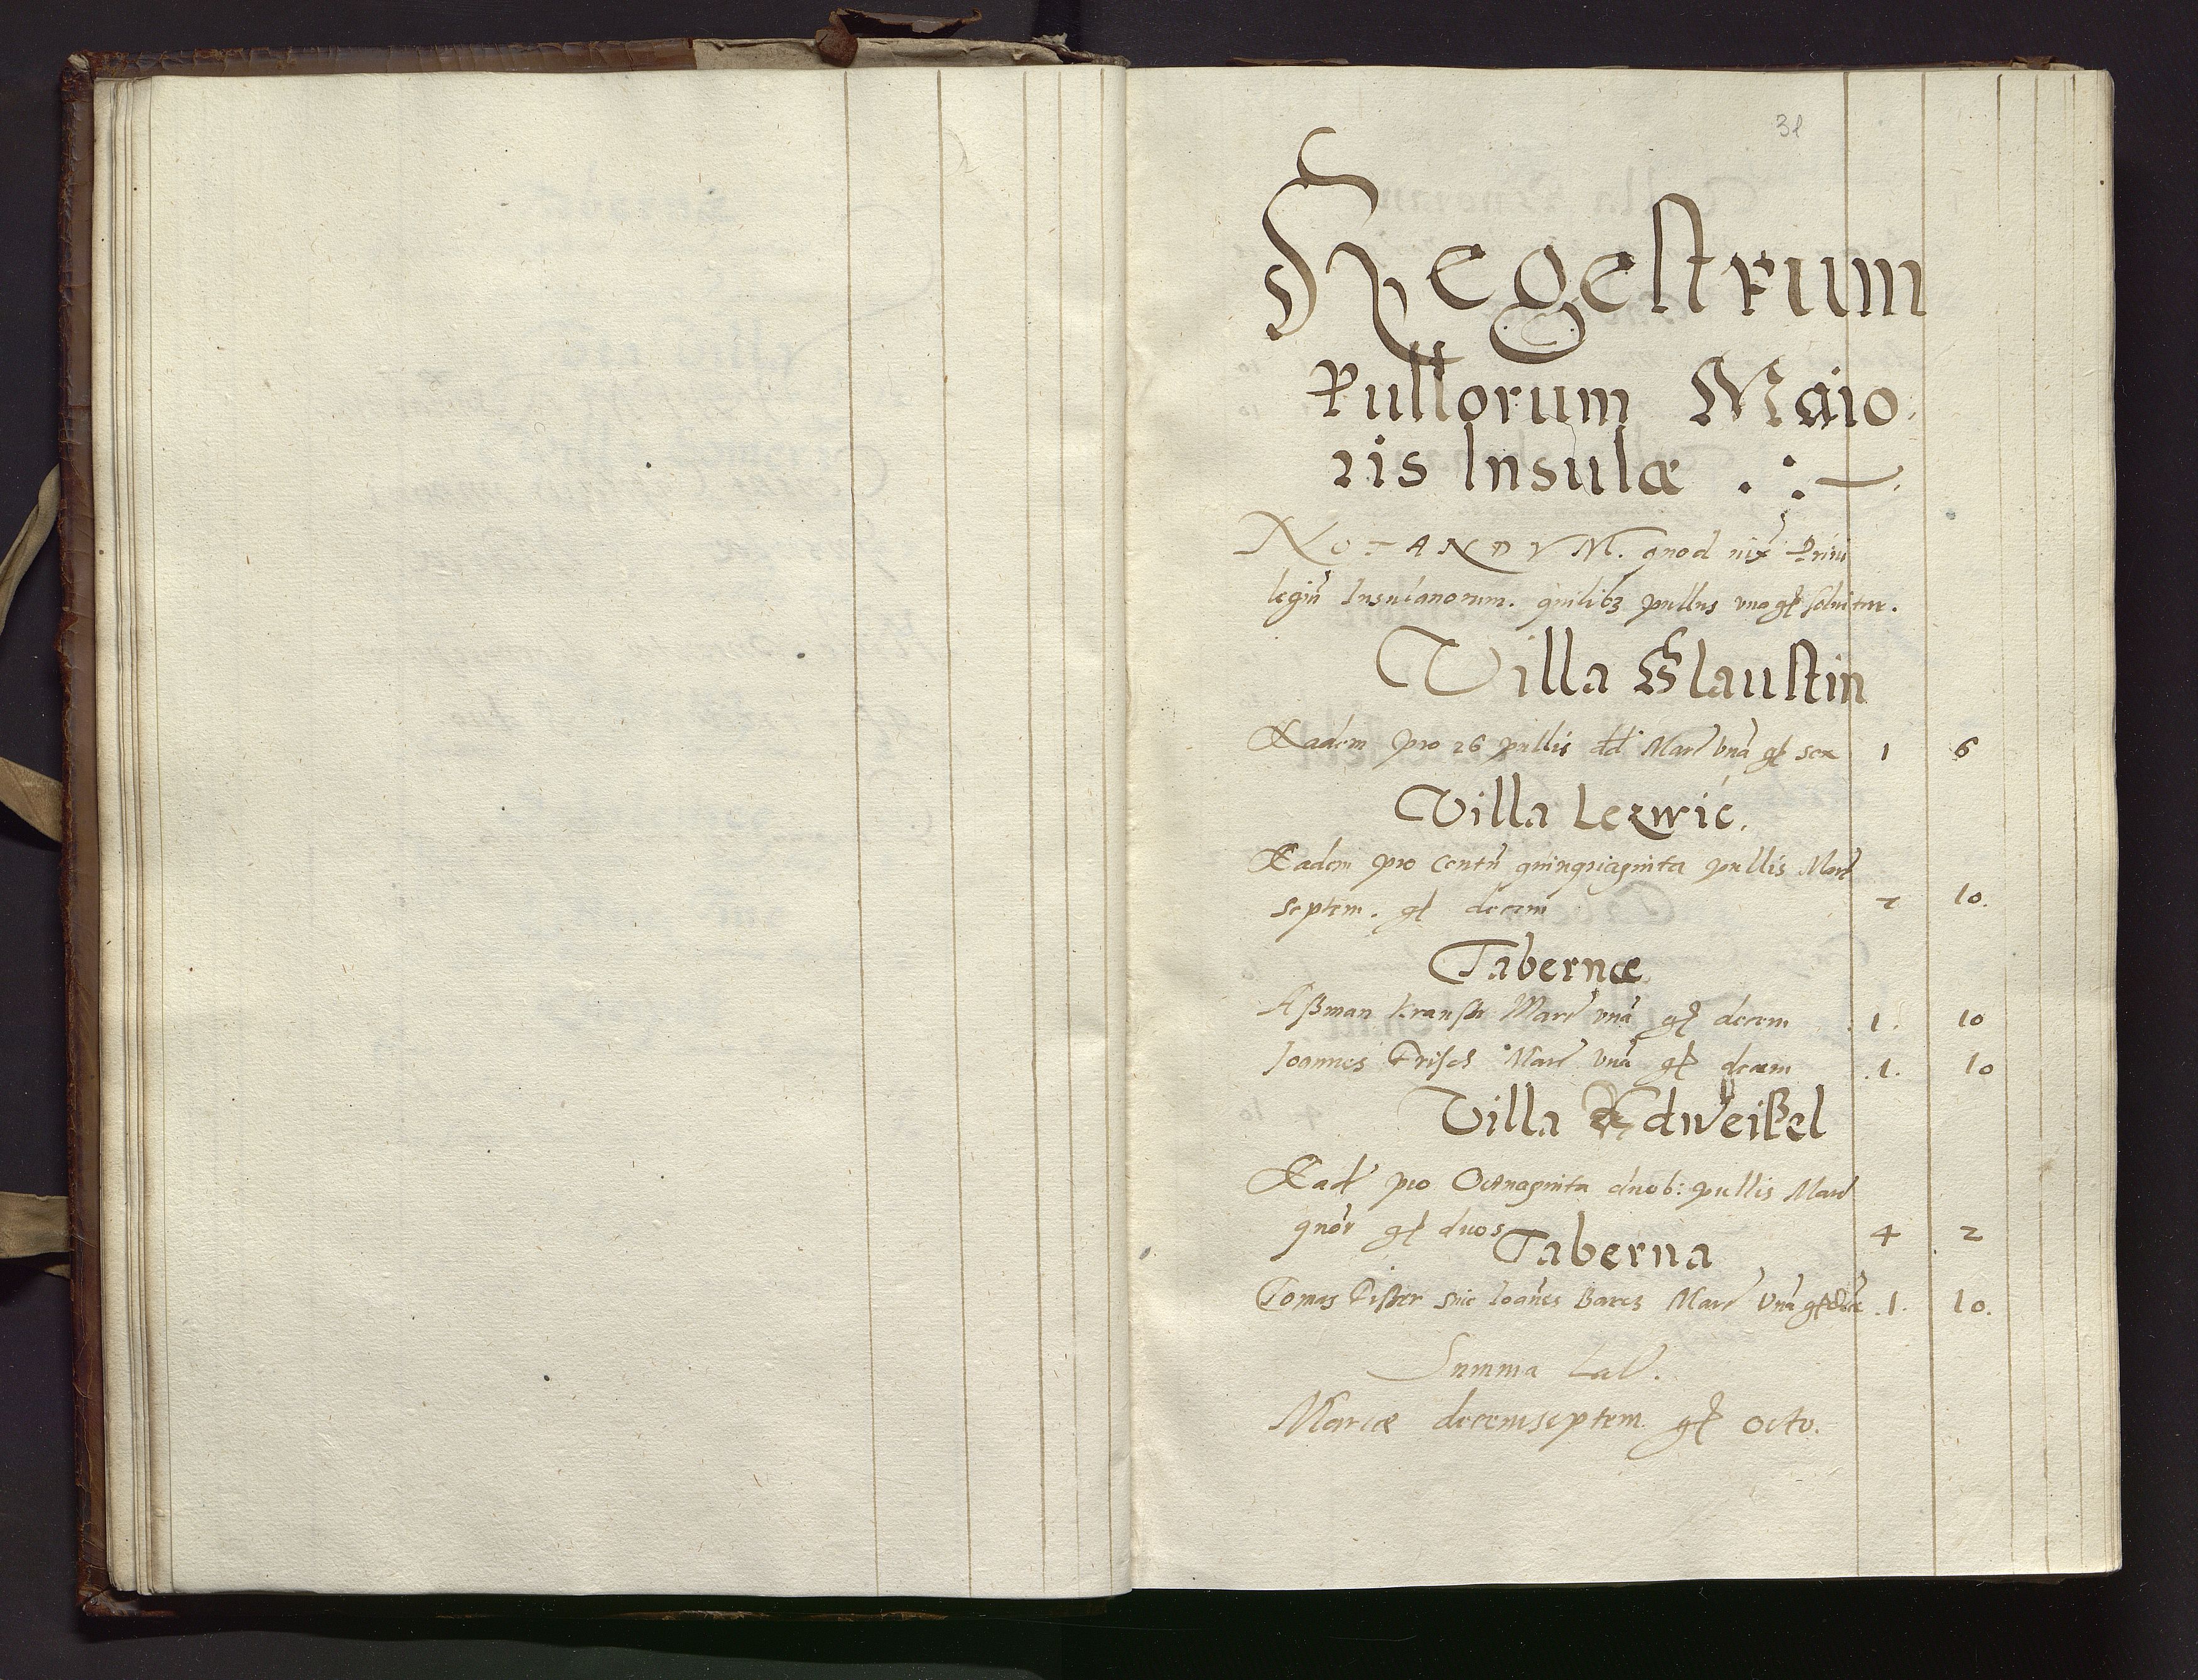 31
Regestrum
Pullorum Maio
ris Insulæ
NOTANDVM. quod iux̃ Priui
legiũ Insulanorum. quilibȝ pullus uno gr̃ soluitur.
Villa Glaustin
Eadem pro 26 pullis dd Marc̃ vnã gr̃ sex 1 6
Villa Lezwic.
Eadem pro Centũ quinquaginta pullis Marc̃
septem. gr̃ decem 7 10.
Tabernæ
Aßman Kranster Marc̃ vnã gr̃ decem 1. 10
Joannes Frisch Marc̃ vnã gr̃ decem .1. 10
Villa Adweißel
Ead̃ pro Octuaginta duob: pullis Marc̃
quõr gr̃ duos 4 2
Taberna
Tomas Fister siue Ioãnes Bartz Marc̃ Vnã gr̃ decẽ .1. 10.
Summa Lat̃.
Marcæ decemseptem gr̃ octo.